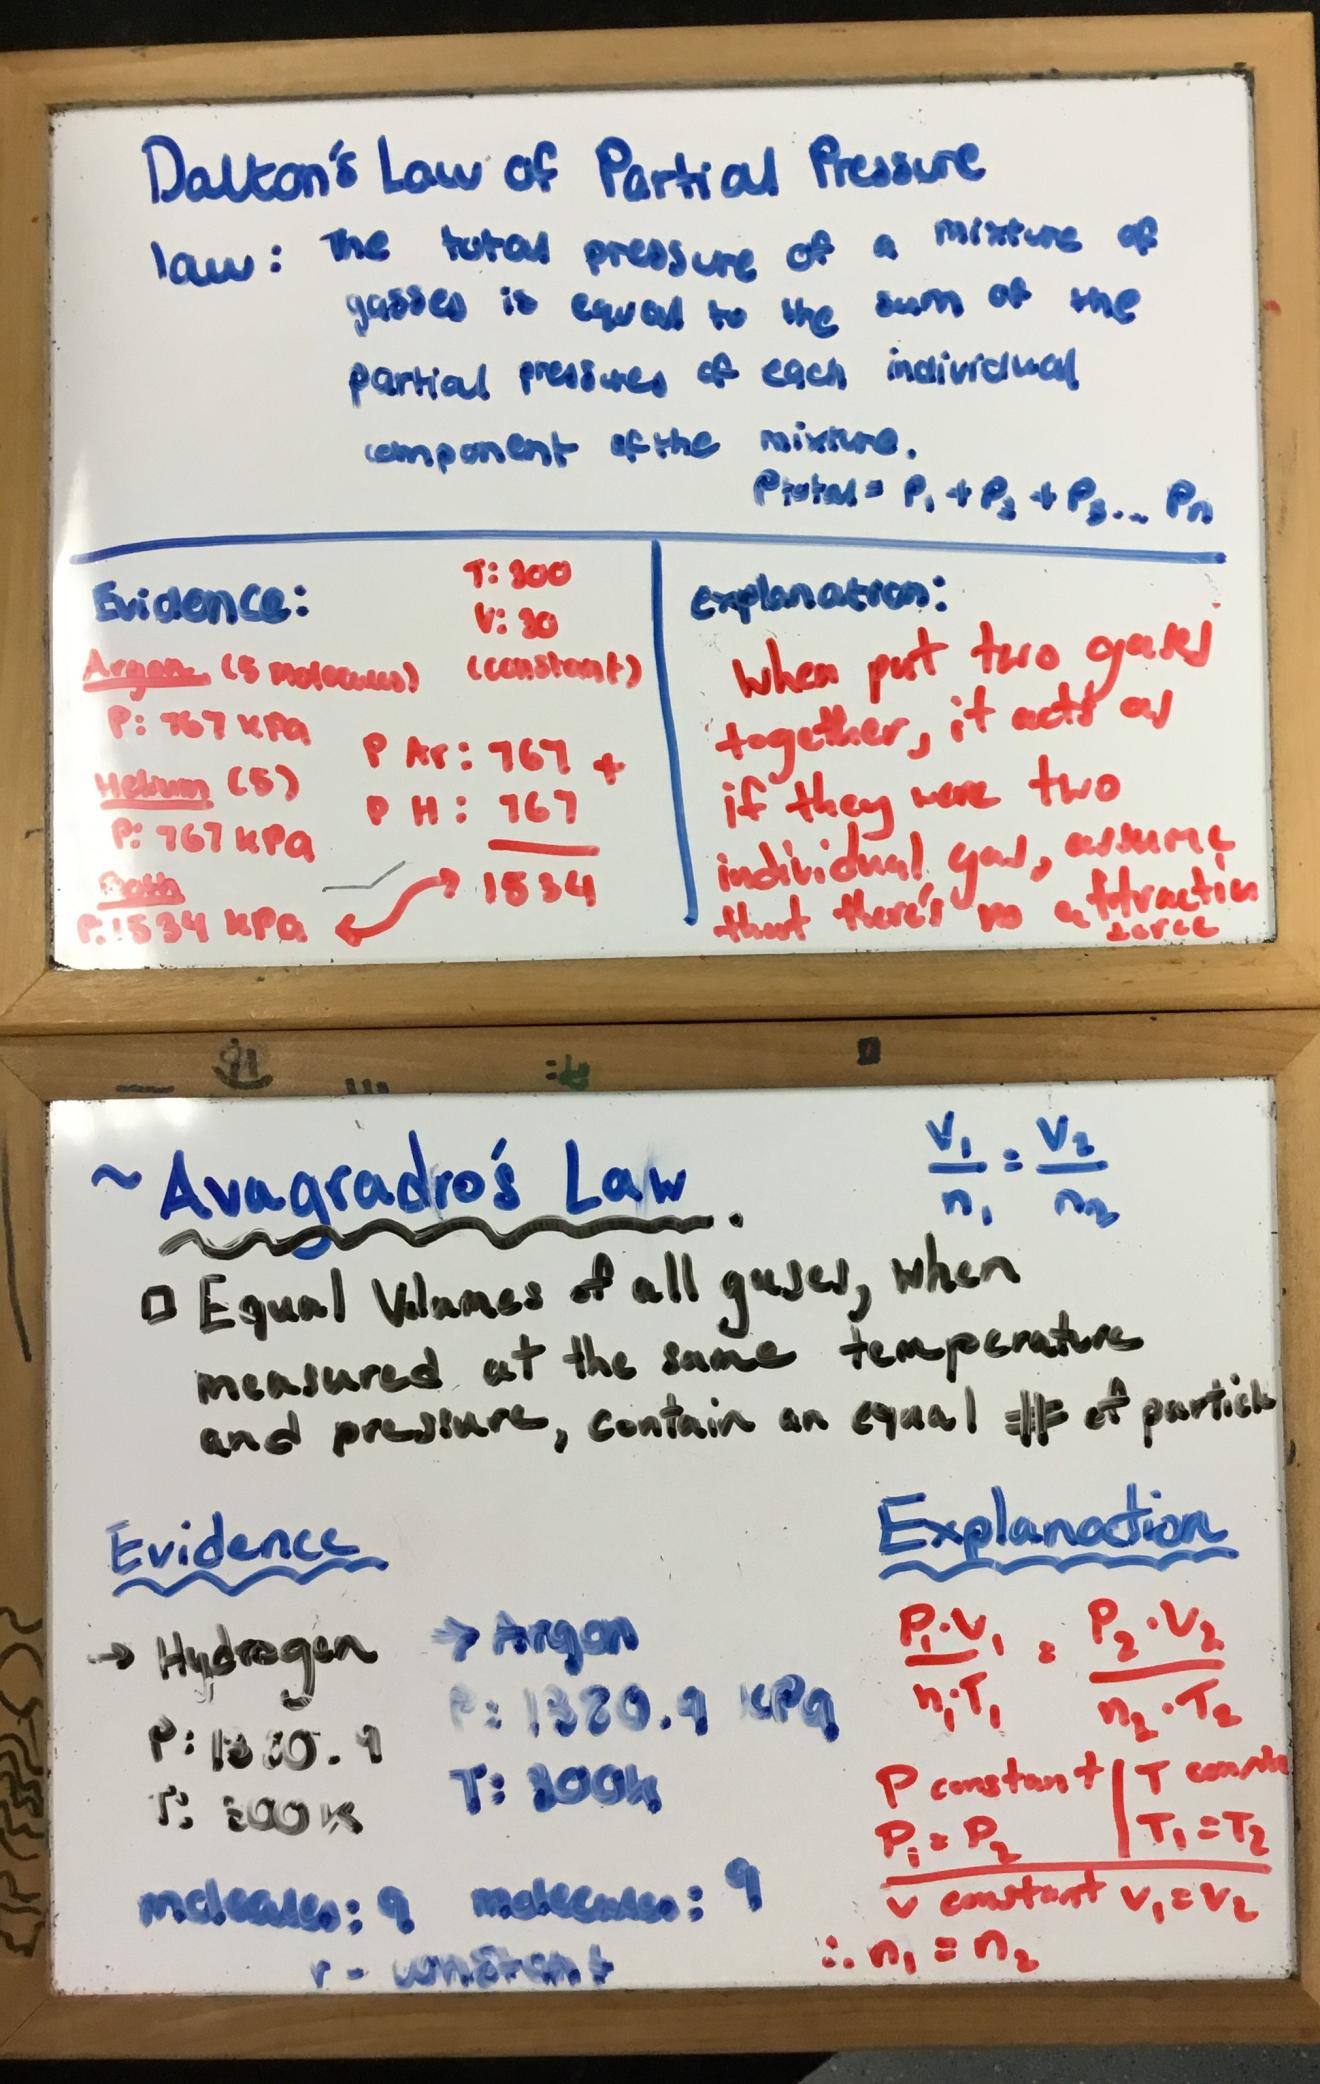 Dalton's Law of Partial Pressure
law: The total pressure of a mixture of
gasses is equal to the sum of the
partial pressures of each individual
component of the mixture.
Ptotal = P₁ + P₂ + P₃... Pn
Evidence:
T: 300
V: 30
(constant)
Argon (5 molecules)
P: 767 KPa
Helium (5)
P: 767 KPa
Both
P: 1534 KPa
P Ar: 767 +
P H: 767
1534
explanation:
When put two gases
together, it acts as
if they were two
individual gas, assume
that there's no attraction
force
~ Avagradro's Law.
V₁/n₁ = V₂/n₂
Equal Volumes of all gases, when
measured at the same temperature
and pressure, contain an equal # of particle
Evidence
→ Hydrogen
P: 1330.9
T: 300K
molecules: 9
→ Argon
P: 1330.9 KPa
T: 300K
molecules: 9
constant
Explanation
P₁·V₁/n₁·T₁ = P₂·V₂/n₂·T₂
P constant | T
P₁ = P₂ | T₁ = T₂
V constant V₁ = V₂
∴ n₁ = n₂